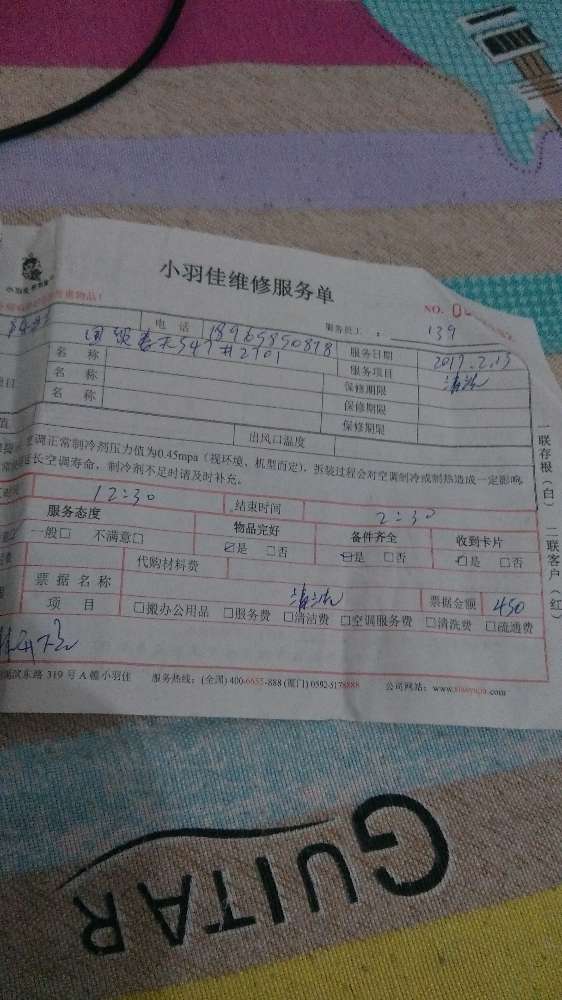 小羽佳维修服务单
NO. 0
服务员工： 139
电 话 18965850818 服务日期 2017.2.13
547#2701 服务项目 清洗
名 称 保修期限
名 称 保修期限
名 称 保修期限
出风口温度
空调正常制冷剂压力值为0.45mpa（视环境、机型而定），拆装过程会对空调制冷或制热造成一定影响
延长空调寿命，制冷剂不足时请及时补充。
12:30 结束时间 2:30
服务态度 物品完好 备件齐全 收到卡片
一般□ 不满意□ ☑是 □否 ☑是 □否 ☑是 □否
代购材料费
票据名称 清洗 票据金额 450
项 目 □搬办公用品 □服务费 □清洁费 □空调服务费 □清洗费 □疏通费
滨东路 319 号 A 幢小羽佳 服务热线：(全国) 400-6655-888 (厦门) 0592-5178888 公司网站：www.xiaoyujia.com
一联存根（白） 二联客户（红）
GUITAR